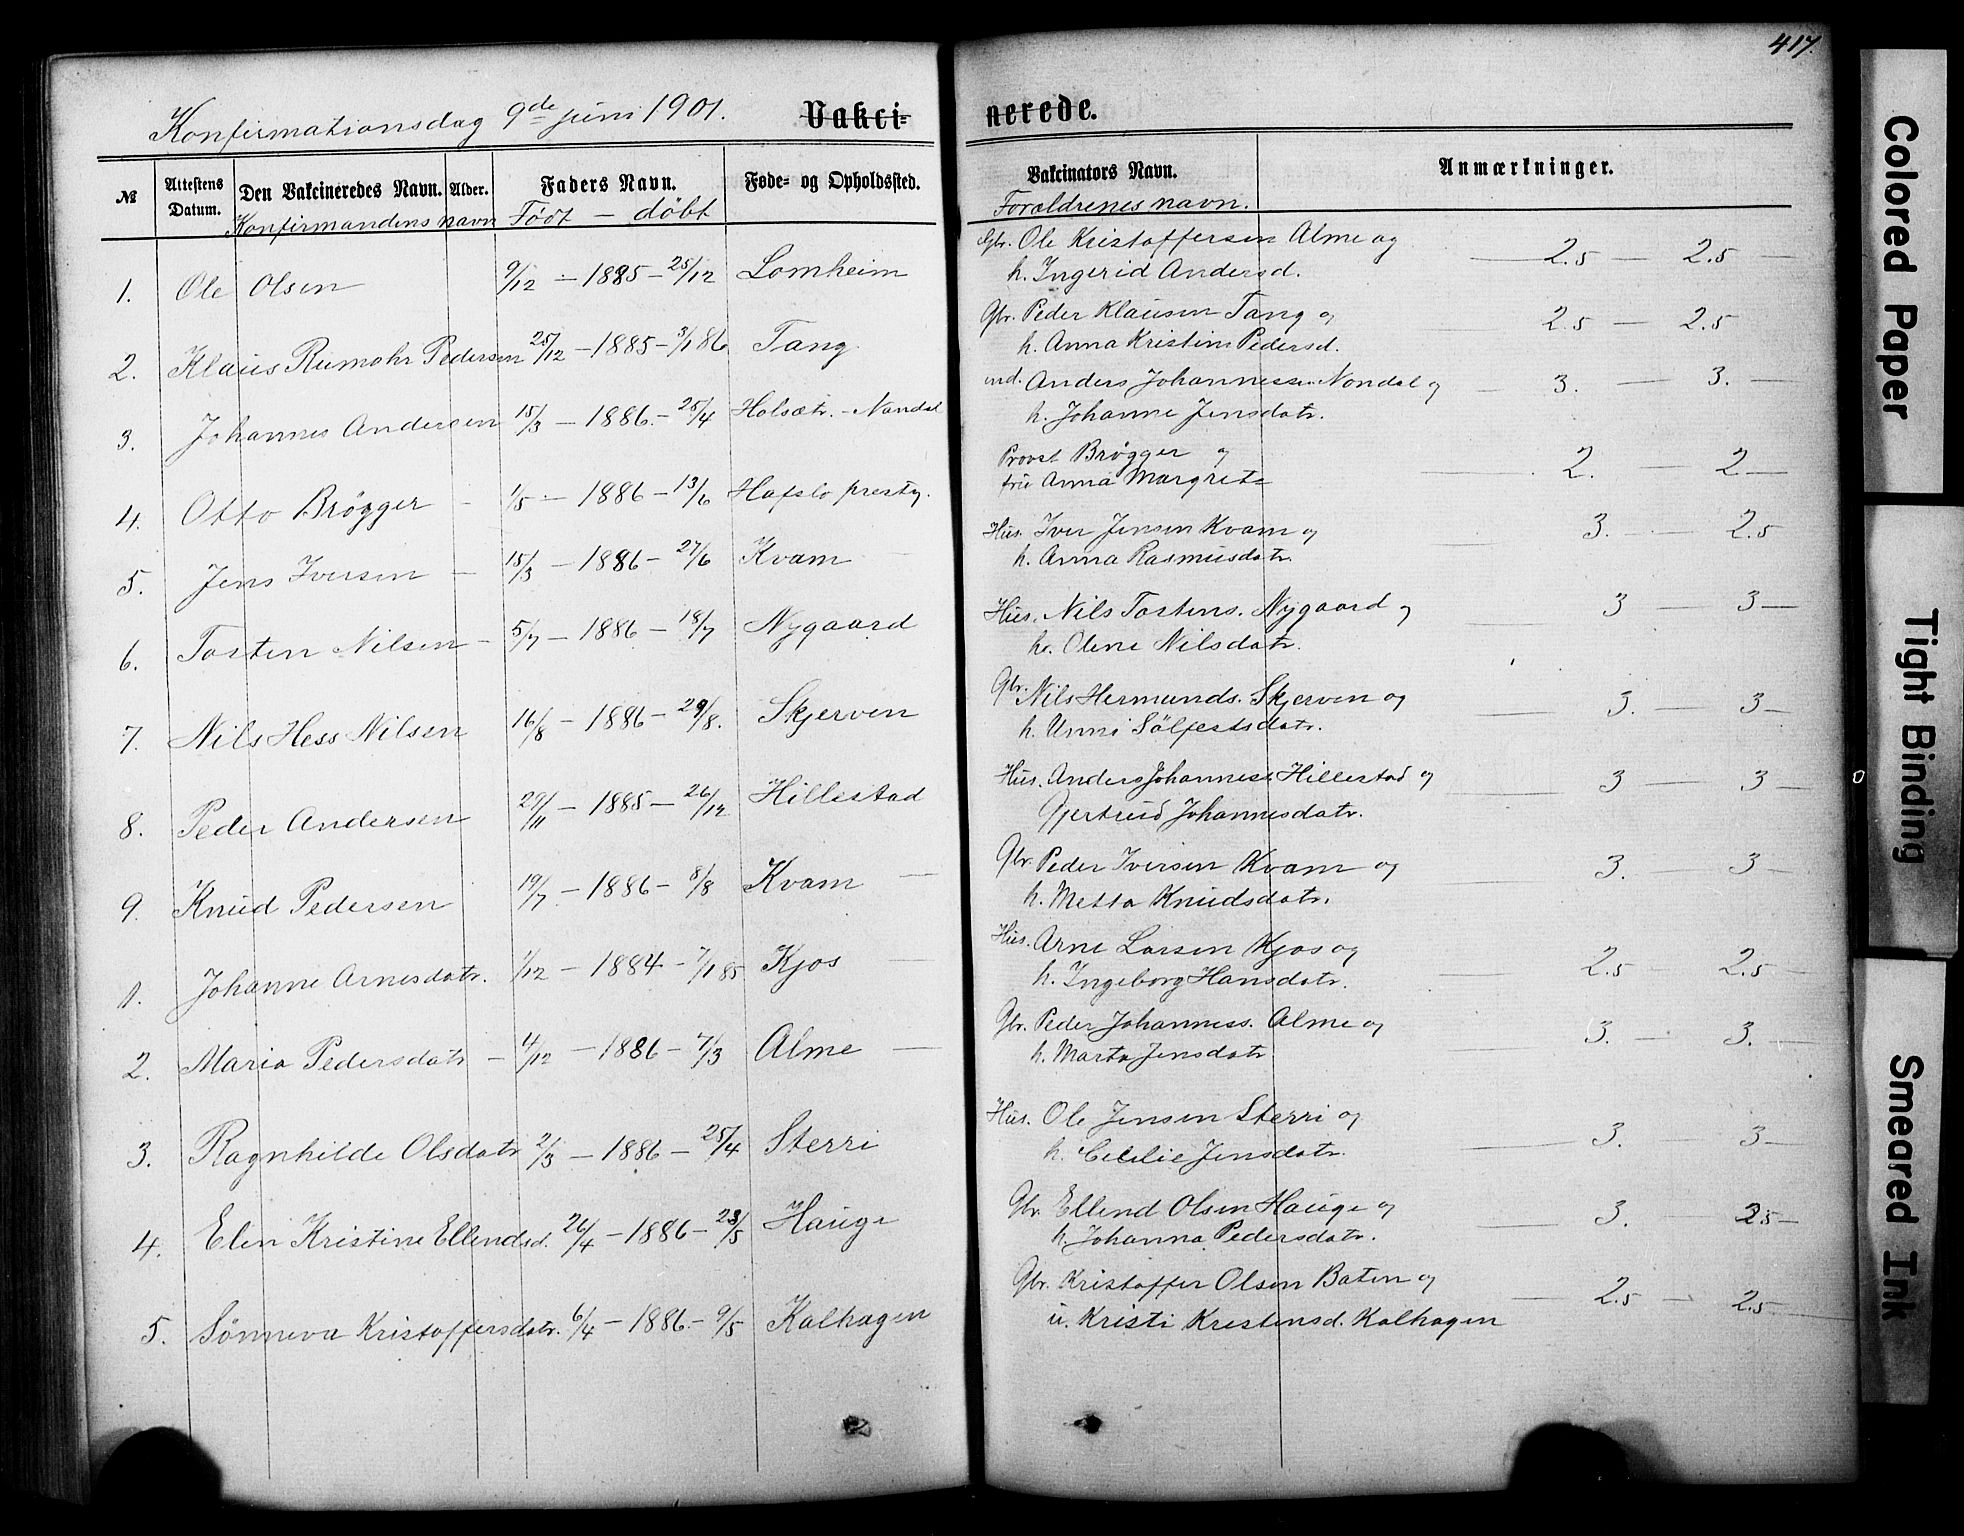 417.
Konfirmationsdag 9de juni 1901. Vakci-
nerede.
№ Attestens Datum. Den Vakcineredes Navn. Alder. Faders Navn. Føde- og Opholdssted.
Konfirmandens navn Født — døbt
Vakcinators Navn. Anmærkninger.
Forældrenes navn.
1. Ole Olsen 9/12 — 1885 — 25/12 Lomheim
Gbr. Ole Kristoffersen Alme og
h. Ingerid Andersd. — 2.5 — 2.5 —
2. Klaus Rumohr Pedersen 25/12 — 1885 — 3/1 86 Tang
Gbr. Peder Klausen Tang og
h. Anna Kristine Pedersd. — 2.5 — 2.5
3. Johannes Andersen 15/3 — 1886. — 25/4 Holsætr. - Nondal
ind. Anders Johannessen Nondal og
h. Johanne Jensdatr. — 3. — 3. —
4. Otto Brøgger — 1/5 — 1886 — 13/6 Hafslo prestg.
Provst Brøgger og
frue Anna Margrete — 2. — 2 —
5. Jens Iversen — 15/3 — 1886 — 27/6 Kvam —
Hus. Iver Jensen Kvam og
h. Anna Rasmusdatr. — 3. — 2.5
6. Tosten Nilsen — 5/7 — 1886 — 18/7 Nygaard
Hus. Nils Tostens. Nygaard og
h. Olene Nilsdatr. — 3 — 3 —
7. Nils Hess Nilsen 16/8 — 1886 — 29/8. Skjerven
Gbr. Nils Hermunds. Skjerven og
h. Unni Sølfestsdatr. — 3. — 3 —
8. Peder Andersen 29/11 — 1885 — 26/12 Hillestad
Hus. Anders Johanness. Hillestad og
Gjertrud Johannesdatr. — 3 — 3 —
9. Knud Pedersen 19/7 — 1886 — 8/8 Kvam —
Gbr. Peder Iversen Kvam og
h. Metta Knudsdatr. — 3. — 3 —
1. Johanne Arnesdatr. 1/12 — 1884 — 7/1 85 Kjos —
Hus. Arne Larsen Kjos og
h. Ingeborg Hansdatr. — 2.5 2.5 —
2. Maria Pedersdatr — 4/12 — 1886 — 7/3 Alme —
Gbr. Peder Johanness. Alme og
h. Marta Jensdatr — 3. — 3. —
3. Ragnhilde Olsdatr 2/3 — 1886 — 25/4 Sterri
Hus. Ole Jensen Sterri og
h. Cecilie Jensdatr. — 3. 3 —
4. Elen Kristine Ellendsd. 26/4 — 1886 — 23/5 Hauge
Gbr. Ellend Olsen Hauge og
h. Johanna Pedersdatr. — 3. — 2.5 —
5. Sønneva Kristoffersdatr. 6/4 — 1886. — 9/5 Kalhagen
Gbr. Kristoffer Olsen Baten og
u. Kristi Krestensd. Kalhagen — 2.5 — 2.5. —
Colored Paper
Tight Binding
Smeared Ink